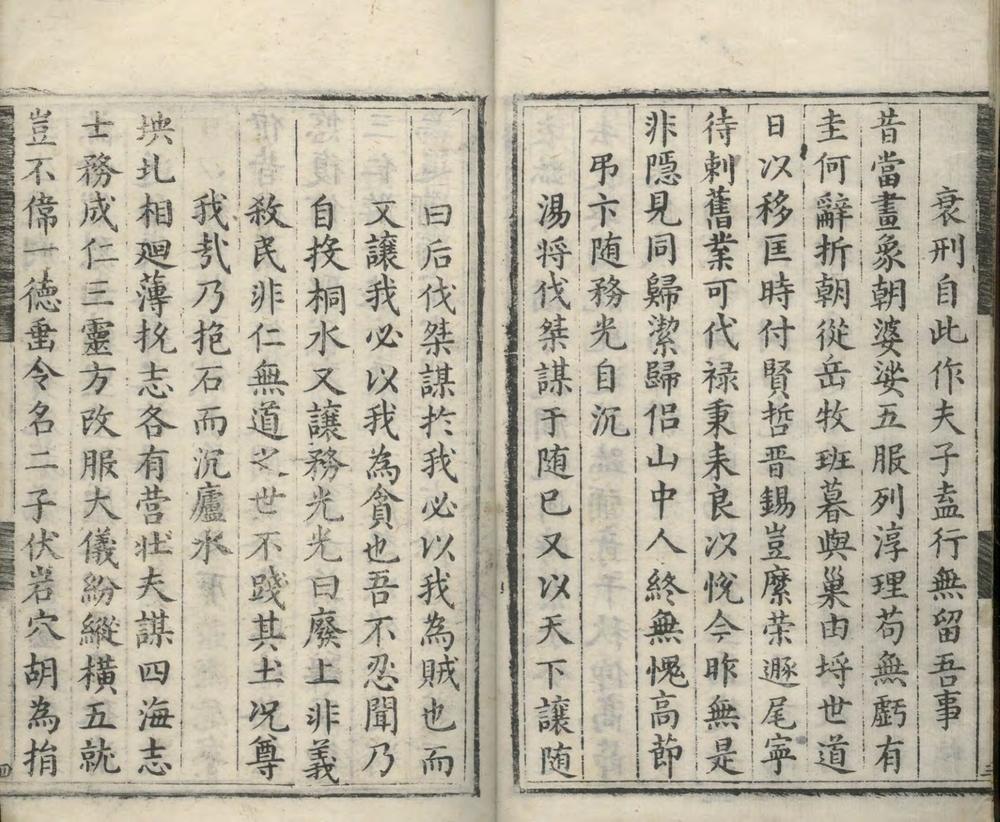 衰刑自此作夫子盍行無留吾事
昔當畫象朝婆娑五服列淳理苟無虧有
圭何辭折朝從岳牧班暮與巢由埒世道
日以移匡時付賢哲晉錫豈縻荣遯尾寧
待刺舊業可代禄秉耒良以悅今昨無是
非隱見同歸潔歸侣山中人終無愧高節
弔卞随務光自沉
湯将伐桀謀于随已又以天下讓随
曰后伐桀謀扵我必以我為賊也而
又讓我必以我為貪也吾不忍聞乃
自投桐水又讓務光光曰廢上非義
殺民非仁無道之世不踐其土况尊
我㢤乃抱石而沉廬水
坱圠相廻薄抗志各有营壮夫謀四海志
士務成仁三靈方改服大儀紛縱橫五就
豈不偉一德垂令名二子伏岩穴胡為捐